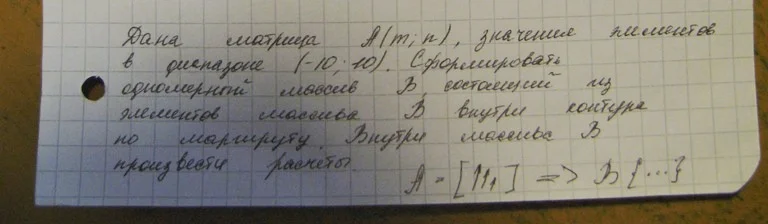 Дана матрица A(m; n), значения элементов
в диапазоне (-10; 10). Сформировать
одномерный массив B, состоящий из
элементов массива B внутри контура
по маршруту. Внутри массива B
произвести расчеты.
A = [ ] => B {...}